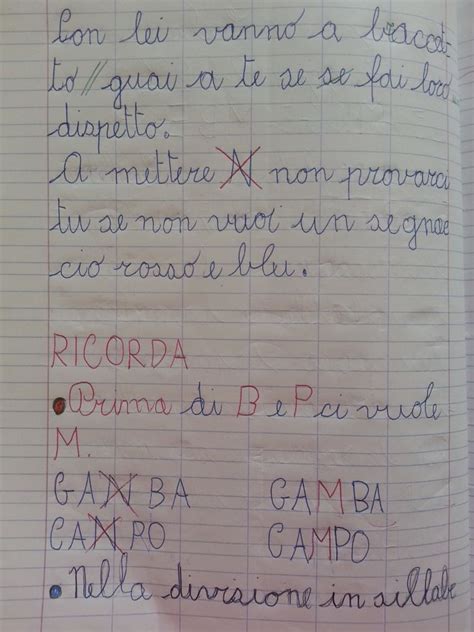 Con lei vanno a braccet
to // guai a te se se fai loro
dispetto.
A mettere N non provarci
tu se non vuoi un segnac
cio rosso e blu.
RICORDA
• Prima di B e P ci vuole
M.
GANBA GAMBA
CANPO CAMPO
• Nella divisione in sillabe